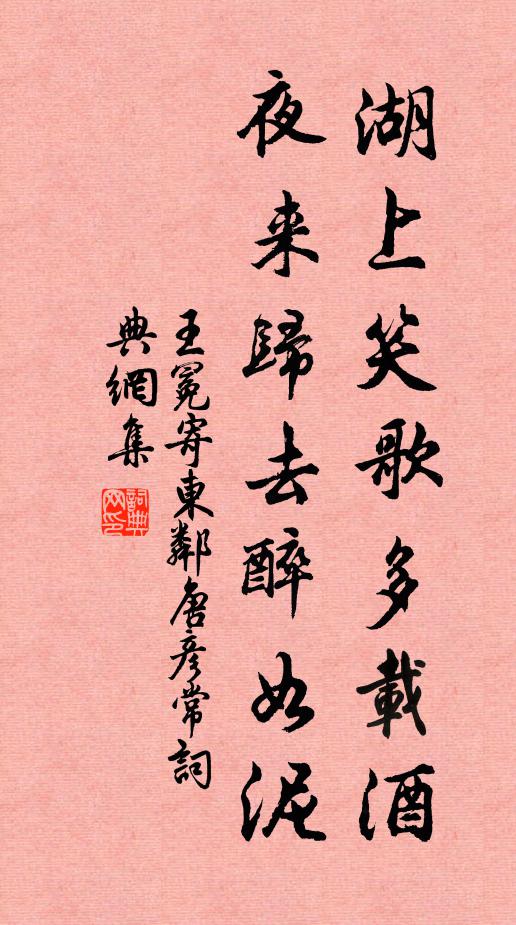 湖上笑歌多載酒
夜来歸去醉如泥
王冕寄東鄰唐彦常詞
典網集
詞典
网印